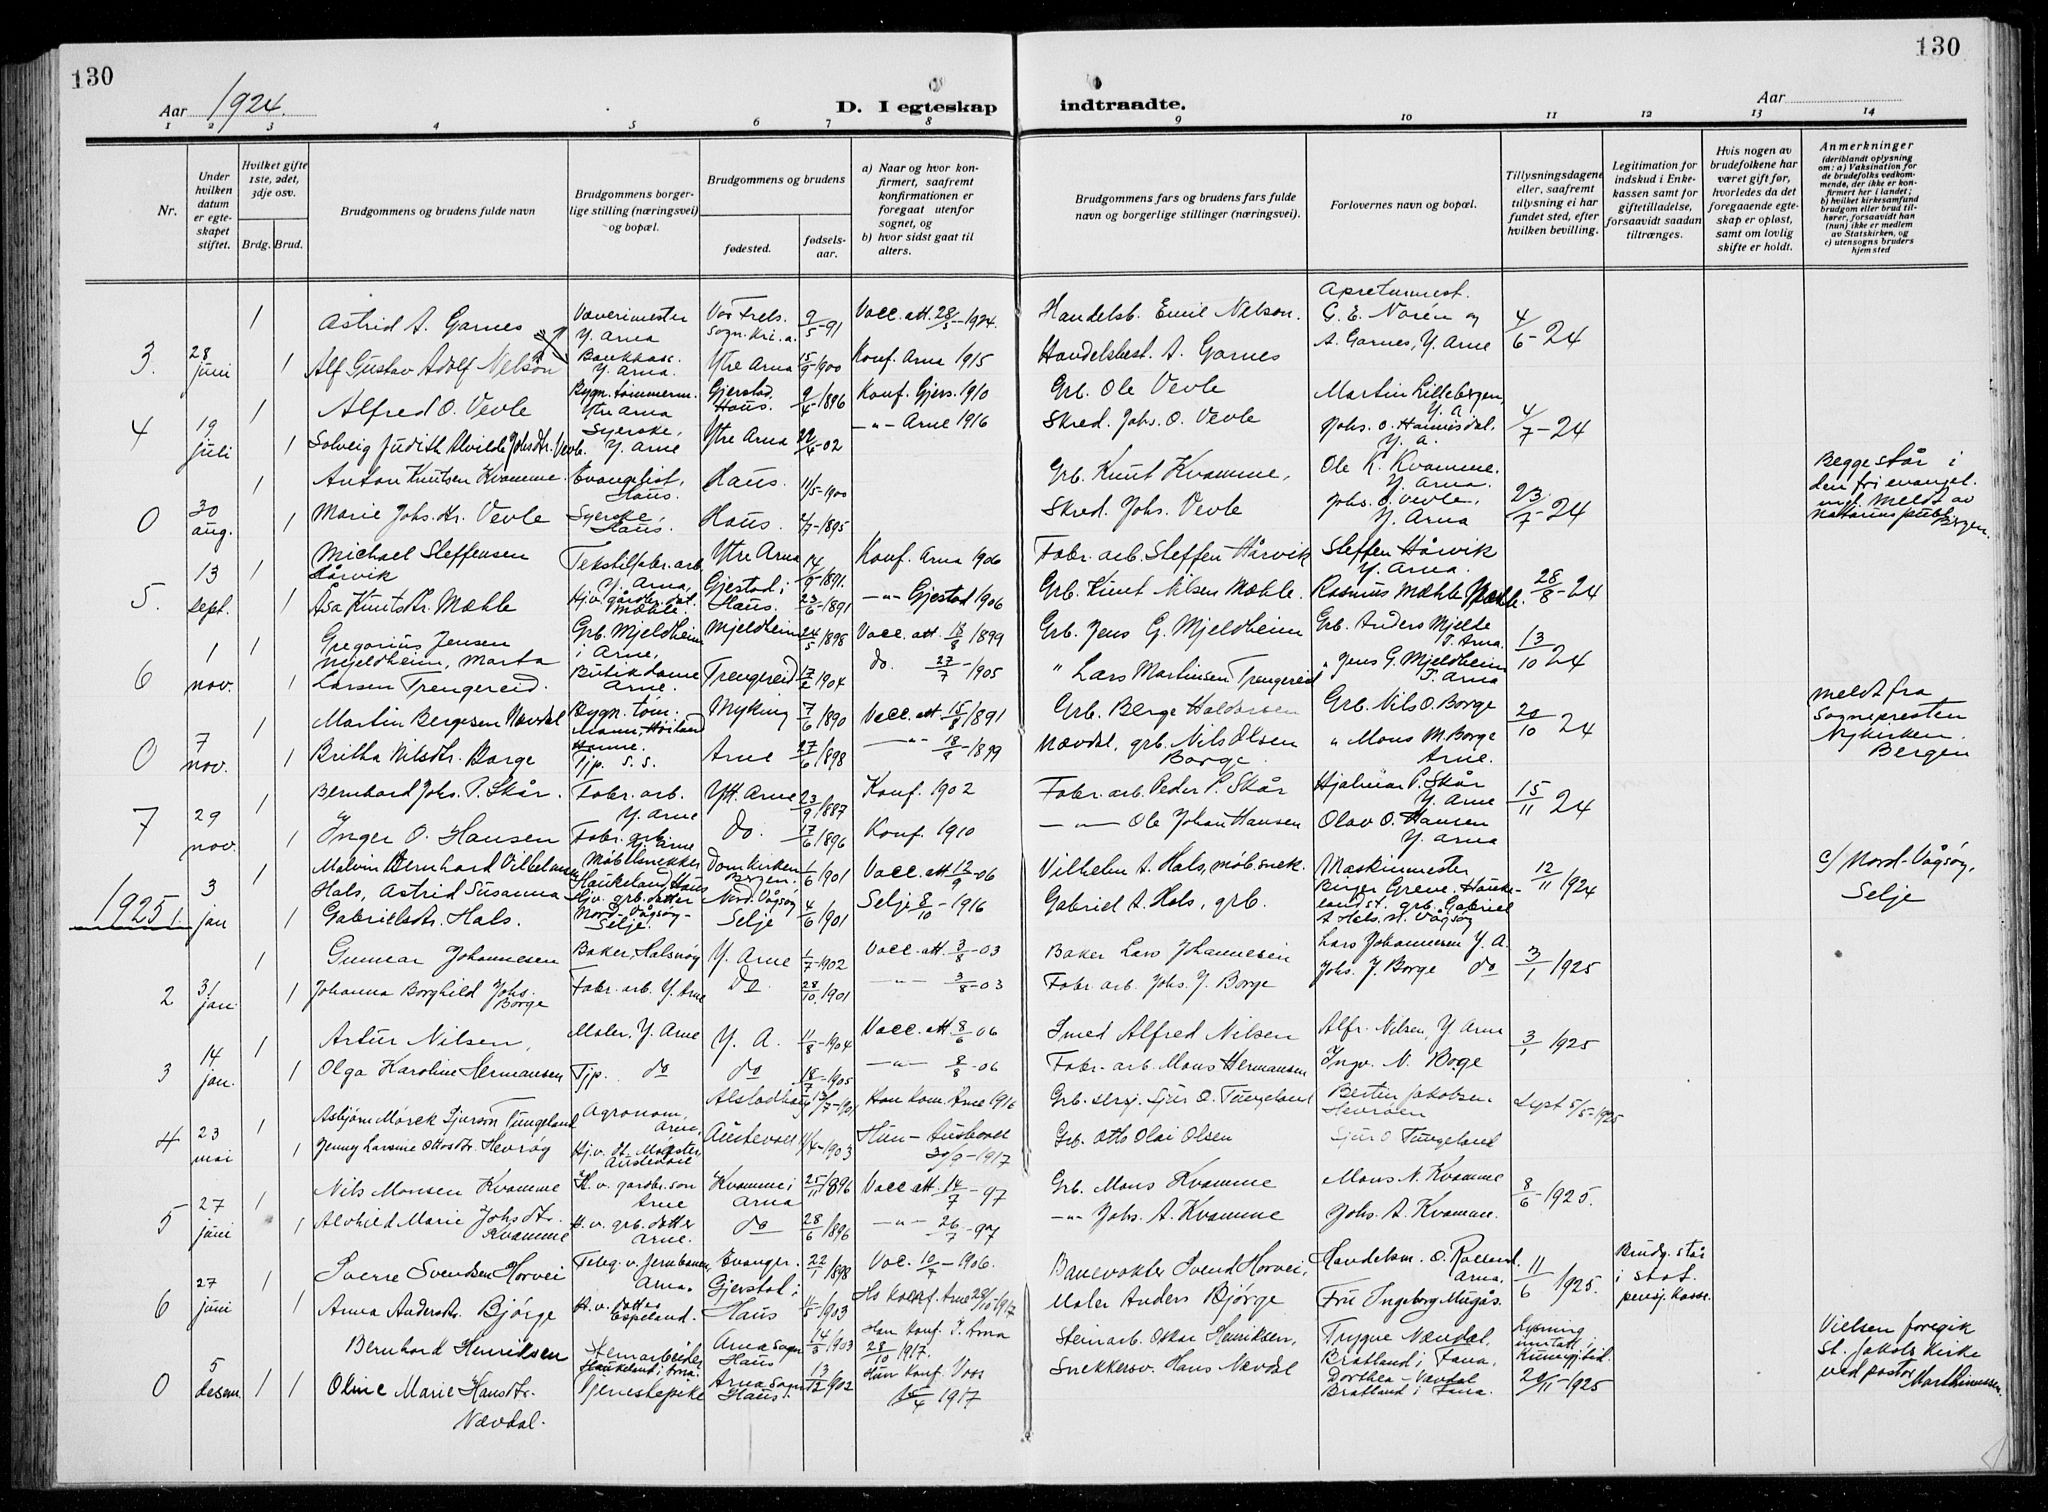 130
130
Aar 1924.
D. I egteskap indtraadte.
Aar
1 2 3 4 5 6 7 8 9 10 11 12 13 14
Nr.
Under hvilken datum er egteskapet stiftet.
Hvilket gifte 1ste, 2det, 3dje osv.
Brdg. Brud.
Brudgommens og brudens fulde navn
Brudgommens borgerlige stilling (næringsvei) og bopæl.
Brudgommens og brudens
fødested.
fødselsaar.
a) Naar og hvor konfirmert, saafremt konfirmationen er foregaat utenfor sognet, og
b) hvor sidst gaat til alters.
Brudgommens fars og brudens fars fulde navn og borgerlige stillinger (næringsvei).
Forlovernes navn og bopæl.
Tillysningsdagene eller, saafremt tillysning ei har fundet sted, efter hvilken bevilling.
Legitimation for indskud i Enkekassen samt for giftetilladelse, forsaavidt saadan tiltrænges.
Hvis nogen av brudefolkene har været gift før, hvorledes da det foregaaende egteskap er opløst, samt om lovlig skifte er holdt.
Anmerkninger
(deriblandt oplysning om: a) Vaksination for de brudefolks vedkommende, der ikke er konfirmert her i landet; b) hvilket kirkesamfund brudgom eller brud tilhører, forsaavidt han (hun) ikke er medlem av Statskirken, og c) utensogns bruders hjemsted
1 Astrid A. Garnes Væverimester Y. Arna Vor Frels. sogn. Kr.a. 9/5-91 Vacc. att. 28/5-1924. Handelsb. Emil Nelson. G. E. Norén og 4/6-24
3. 28 juni 1 Alf Gustav Adolf Nelson Y. Arna. Ytre Arna 15/9-1900 Konf. Arna 1915 Handelsbest. A. Garnes A. Garnes, Y. Arne
1 Alfred O. Vevle Bygn. tømmerm. Ytre Arna Gjerstad Haus. 9/4-1896 Konf. Gjers. 1910 Grb. Ole Vevle Martin Lillebergen, Y. A. 4/7-24
4 19 juli 1 Solveig Judith Alvilde Johsdtr. Vevle. Syerske, Y. Arne Ytre Arna 22/6-02 -"- Arne 1916 Skred. Johs. O. Vevle Johs. O. Hannisdal. Y. A.
1 Anton Knutsen Kvamme. Evangelist, Haus. Haus. 11/5-1900 Grb. Knut Kvamme, Ole K. Kvamme. Y. Arna. 23/7-24 Begge står i den fri evangel.
0 30 aug. 1 Marie Johs.dtr. Vevle Syerske, Haus. Haus. 2/7-1895 Skred. Johs. Vevle Johs. O. Vevle, Y. Arna meldt av Notarius publ. Bergen.
13 Michael Steffensen Hårvik Tekstilfabr. arb. Y. Arna, Ytre Arna 14/9-1891. Konf. Arna 1906 Fabr. arb. Steffen Hårvik Steffen Hårvik Y. Arna. 28/8-24
5. sept. 1 Åsa Knutsdtr. Mæhle Hj.v. gårdbr. dat. Mæhle. Gjestad i Haus. 23/6-1891 -"- Gjestad 1906 Grb. Knut Nilsen Mæhle Rasmus Mæhle Mæhle.
1 Gregorius Jensen Mjeldheim, Marta Grb. Mjeldheim i Arne, Mjeldheim 24/5-1898 Vacc. att. 18/8 1899 Grb. Jens G. Mjeldheim Grb. Anders Mjelde T. Arna. 13/10 24
6 nov. 1 Larsen Trengereid. Butikdame Arne. Trengereid 17/2 1904 do. 27/7-1905 " Lars Martinsen Trengereid " Jens G. Mjeldheim T. Arna
7 1 Martin Bergesen Nævdal Bygn. tøm. Myking 7/6 1890 Vacc. att. 15/8 1891 Grb. Berge Haldorsen Grb. Nils O. Borge 20/10 24 meldt fra Sognepresten Nykirken. Bergen
0 nov. 1 Britha Nilsdtr. Borge Tjp. s. s. Arne 27/6 1898 -"- 18/9-1899 Nævdal, grb. Nils Olsen Borge. " Mons M. Borge Arne.
1 Bernhard Johs. P. Skår. Fabr. arb. Y. Arne Ytt. Arne 23/9 1887 Konf. 1902 Fabr. arb. Peder P. Skår Hjalmar P. Skår Y. Arne 15/11 24
7 29 nov. 1 Inger O. Hansen Fabr. arb. Y. Arne do. 7/6 1896 Konf. 1910 -"- Ole Johan Hansen Olav O. Hansen Y. Arna
1 Malvin Bernhard Vilhelmsen Møbelsnekker Haukeland, Haus Domkirken Bergen. 1/6 1901 Vacc. att. 12/9-06 Vilhelm A. Hals, møb.snek. Maskinmester Birger Greve, Haukeland st. 12/11 1924 c/ Nord-Vågsøy, Selje
1925 1. 3 jan 1 Hals, Astrid Susanna Gabrielsdtr. Hals. Hjv. grb. datter Nord. Vågsøy - Selje. Nord. Vågsøy Selje 4/6 1901 Selje 8/10-1916 Gabriel A. Hals, grb. grb. Gabriel A. Hals, N. Vågsøy
1 Gunnar Johannesen Baker, Halsnøy Y. Arne 1/7-1902 Vacc. att 3/8-03 Baker Lars Johannesen Lars Johannesen Y. A. 3/1 1925
2 31 jan 1 Johanna Borghild Johs. Borge Fabr. arb. Y. Arne Do 28/10. 1901 -"- 3/8-03 Fabr. arb. Johs. J. Borge Johs. J. Borge do
1 Artur Nilsen, Maler, Y. Arne Y. A. 11/8-1904 Vacc. att 8/6 06 Smed Alfred Nilsen Alfr. Nilsen, Y. Arne 3/1 1925
3 14 jan. 1 Olga Karoline Hermansen Tjp. do do 18/7-1905 -"- 8/8-06 Fabr. arb. Mons Hermansen Ingv. N. Boge
1 Asbjørn Mørck Sjurson Tungeland Agronom, Arne, Alstadhaug 13/7-1901 Han kom. Arne 1916 Grb. sersj. Sjur O. Tungeland Bertin Jakobsen Hevrøen Lyst 5/5-1925
4 23 mai 1 Jenny Larsine Ottosdtr. Hevrøy Hj.v. St. Møgster Austevoll Austevoll 11/4-1903 Hun - Austevoll 30/9-1917 Grb. Otto Olai Olsen Sjur O. Tungeland
1 Nils Monsen Kvamme H. v. gardbr. son Arne Kvamme i Arna 25/11 1896 Vacc att. 14/7-97 Grb. Mons Kvamme Mons N. Kvamme 8/6-1925.
5 27 juni 1 Alvhild Marie Johsdtr. Kvamme H. v. grb. datter Arne. do 28/6 1896 -"- 26/7-97 -"- Johs. A. Kvamme Johs. A. Kvamme.
1 Sverre Svendsen Horvei Telegr. v. Jernbanen, Arna. Evanger. 22/1 1898 Vac. 10/7-1906. Banevokter Svend Horvei, Handelsm. O. Rolland. Arna. 11/6 1925. Brudg. står i stat. pensj. kasse.
6 27 juni 1 Anna Andersdtr. Bjørge H. v. datter Espeland. Gjerstad i Haus 11/5 1903 Hs konf. Arne 28/10-1917 Maler Anders Bjørge Fru Ingeborg Mugås.
Bernhard Henriksen Stenarbeider Haukeland i Arna. Arna sogn Haus 14/3 1903 Han konf. Y. Arna 28/10 1917. Steinarb. Oskar Henriksen, Trygve Nævdal, Bratland i Fana. Lysning Vielsen foregik St. Jakobs kirke ved pastor Marthinussen.
0 5 desem 1 1 Oline Marie Hansdtr. Nævdal. Tjenestepike Arna sogn Haus. 13/12 1902 Hun konf. Voss 15/4 1917 Snekkersv. Hans Nævdal Dorthea Nævdal Bratland i Fana. 20/11-1925